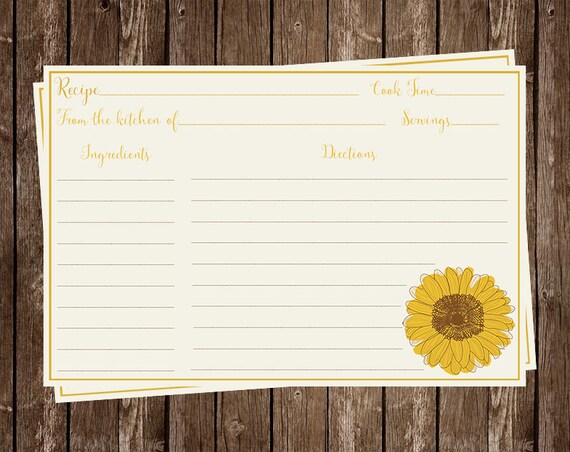 Recipe Cook Time
From the kitchen of Servings
Ingredients Diections